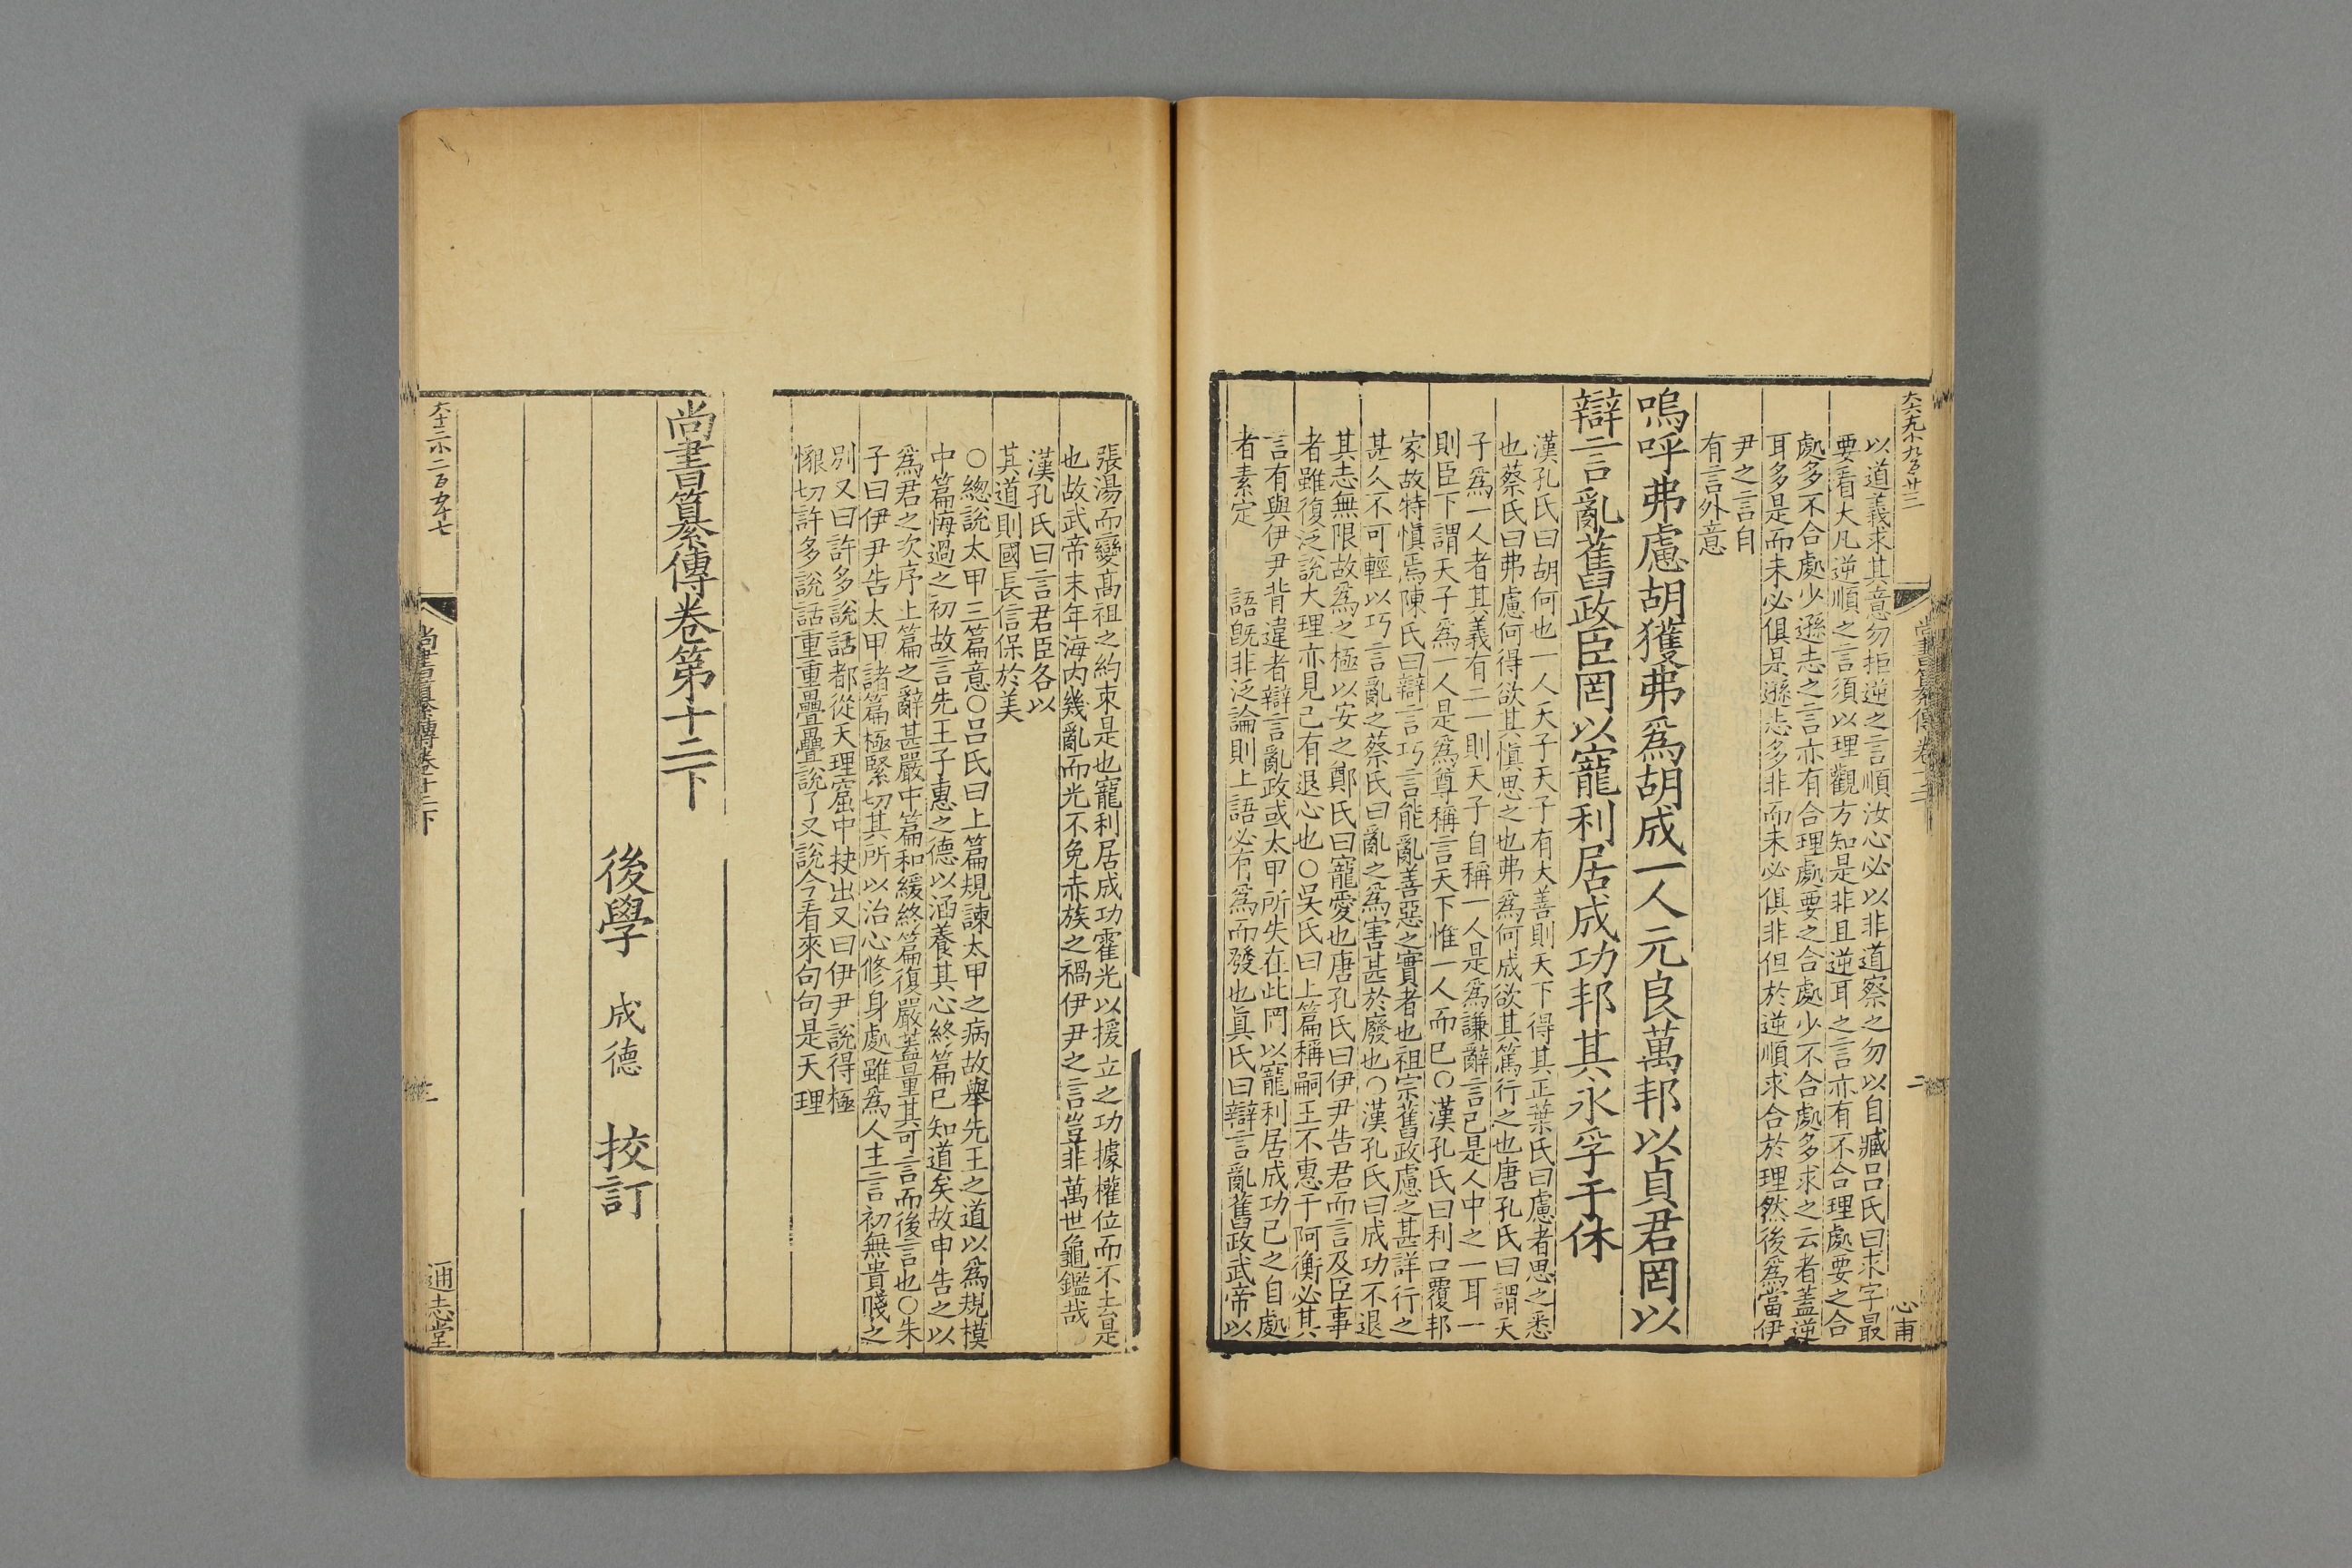 以道義求其意勿拒逆之言順汝心必以非道察之勿以自臧呂氏曰求字最
要看大凡逆順之言須以理觀方知是非且逆耳之言亦有不合理處要之合
處多不合處少遜志之言亦有合理處要之合處少不合處多求之云者蓋逆
耳多是而未必俱是遜志多非而未必俱非但於逆順求合於理然後為當伊
尹之言自
有言外意
嗚呼弗慮胡獲弗爲胡成一人元良萬邦以貞君罔以
辯言亂舊政臣罔以寵利居成功邦其永孚于休
漢孔氏曰胡何也一人天子天子有大善則天下得其正葉氏曰慮者思之悉
也蔡氏曰弗慮何得欲其慎思之也弗爲何成欲其篤行之也唐孔氏曰謂天
子爲一人者其義有二一則天子自稱一人是爲謙辭言己是人中之一耳一
則臣下謂天子爲一人是爲尊稱言天下惟一人而已○漢孔氏曰利口覆邦
家故特慎焉陳氏曰辯言巧言能亂善惡之實者也祖宗舊政慮之甚詳行之
甚久不可輕以巧言亂之蔡氏曰亂之爲害甚於廢也○漢孔氏曰成功不退
其志無限故爲之極以安之鄭氏曰寵愛也唐孔氏曰伊尹告君而言及臣事
者雖復泛說大理亦見己有退心也○吳氏曰上篇稱嗣王不惠于阿衡必其
言有與伊尹背違者辯言亂政或太甲所失在此罔以寵利居成功已之自處
者素定 語旣非泛論則上語必有爲而發也眞氏曰辯言亂舊政武帝以
尚書纂傳卷十二
二
心甫
張湯而變高祖之約束是也寵利居成功霍光以援立之功據權位而不去是
也故武帝末年海内幾亂而光不免赤族之禍伊尹之言豈非萬世龜鑑哉
漢孔氏曰言君臣各以
其道則國長信保於美
○緫說太甲三篇意○呂氏曰上篇規諫太甲之病故舉先王之道以爲規模
中篇悔過之初故言先王子惠之德以涵養其心終篇已知道矣故申告之以
爲君之次序上篇之辭甚嚴中篇和緩終篇復嚴蓋量其可言而後言也○朱
子曰伊尹告太甲諸篇極緊切其所以治心修身處雖爲人主言初無貴賤之
別又曰許多說話都從天理窟中抉出又曰伊尹說得極
懇切許多說話重重疊疊說了又說今看來句句是天理
尚書纂傳卷第十二下
後學 成德 挍訂
大十二小二百五十七
尚書纂傳卷十二下
通志堂